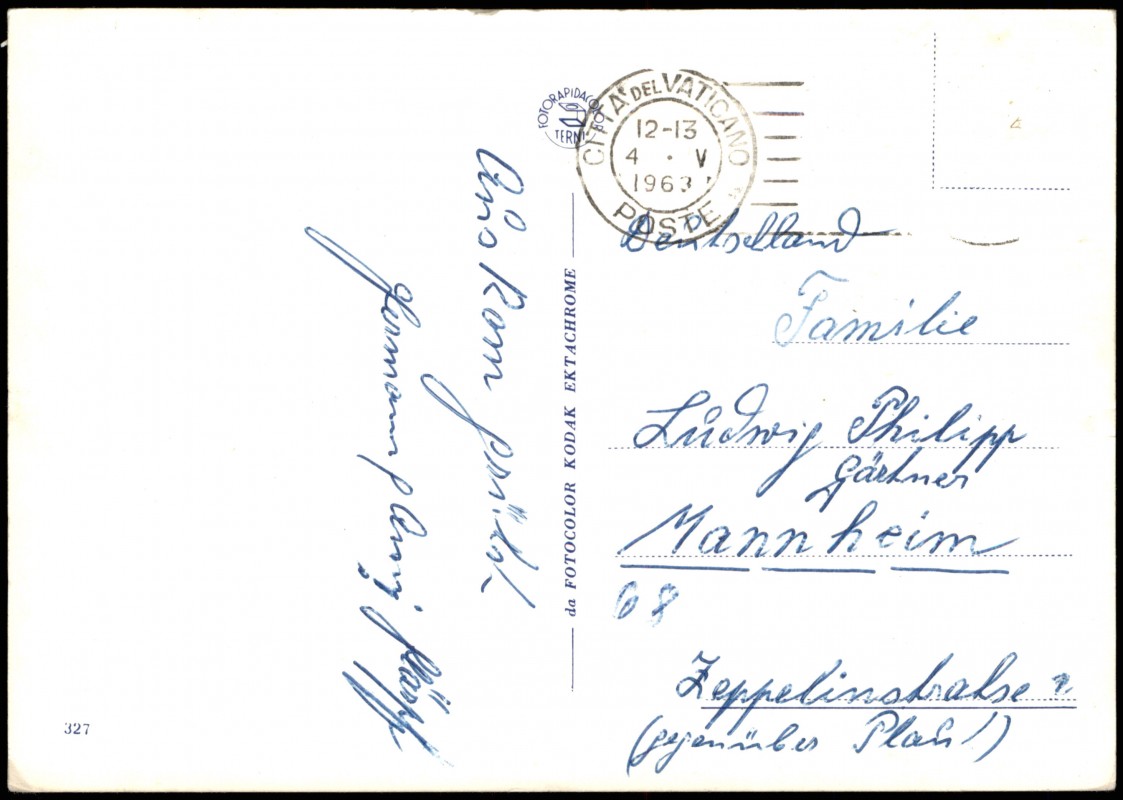 FOTORAPIDACOLOR
TERNI
CITTA DEL VATICANO
12-13
4 · V
1963
POSTE
Aus Rom grüßt
Hermann
da FOTOCOLOR KODAK EKTACHROME
Deutschland
Familie
Ludwig Philipp
Gärtner
Mannheim
68
Zeppelinstrahse
(gegenüber Plau!)
327